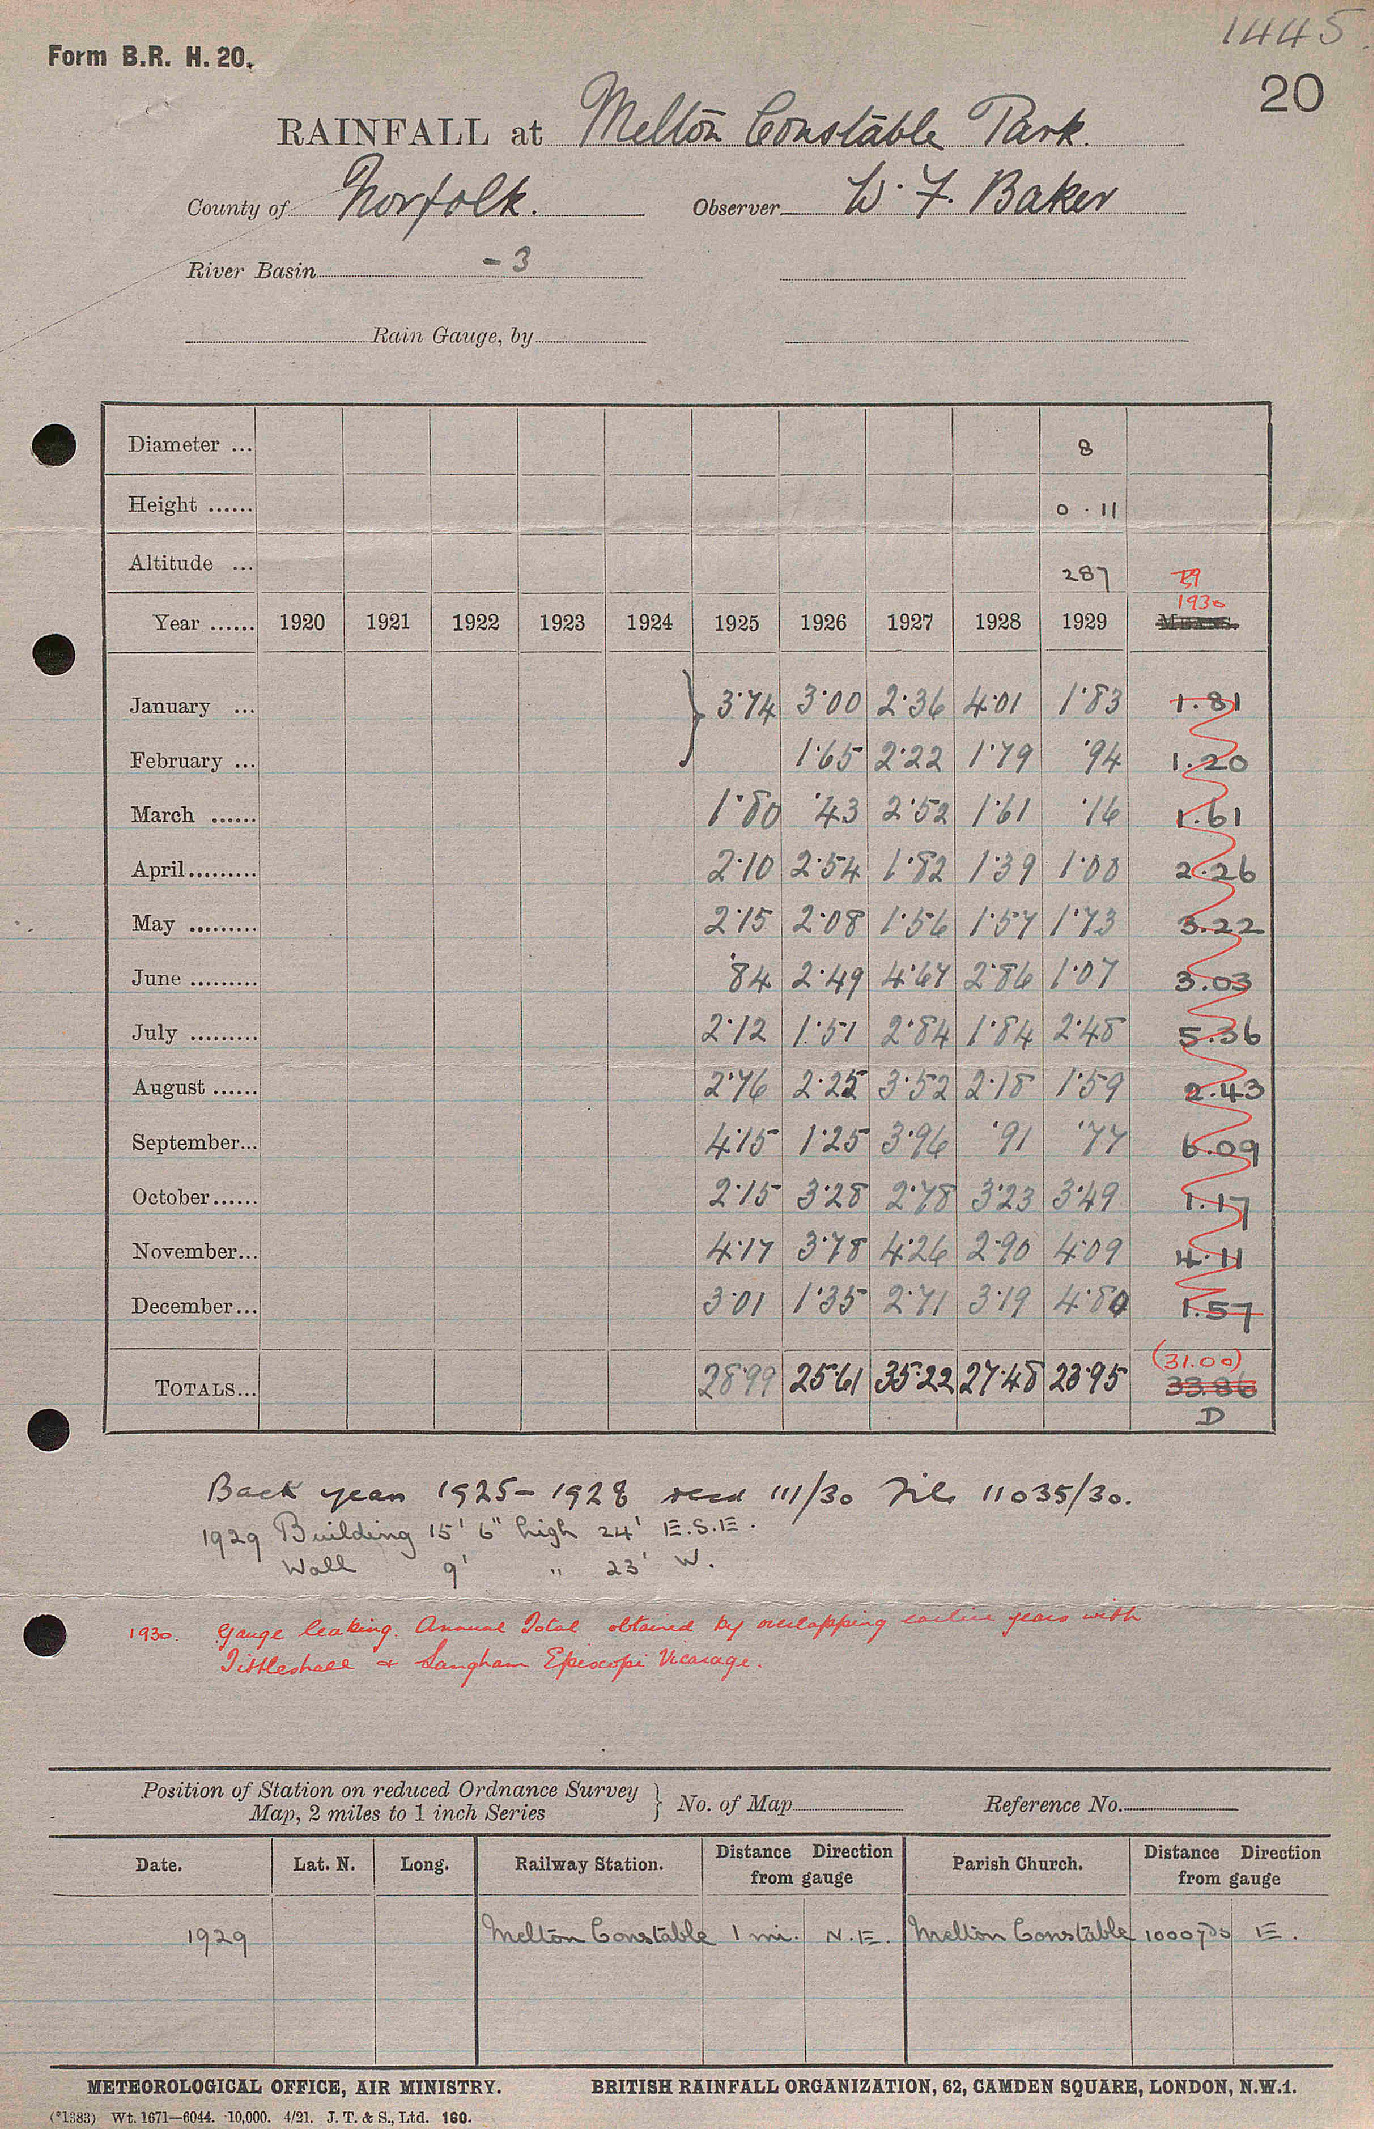 1445.
Form B.R. H. 20.
20
RAINFALL at Melton Constable Park.
County of Norfolk. Observer W. F. Baker
River Basin - 3
Rain Gauge, by
Diameter ... 8
Height ...... 0 . 11
Altitude ... 287
Year ...... 1920 1921 1922 1923 1924 1925 1926 1927 1928 1929 1930 MEANS.
January ... } 3.74 3.00 2.36 4.01 1.83 1.81
February ... 1.65 2.22 1.79 .94 1.20
March ...... 1.80 .43 2.52 1.61 .16 1.61
April......... 2.10 2.54 1.82 1.39 1.00 2.26
May ......... 2.15 2.08 1.56 1.57 1.73 3.22
June ......... .84 2.49 4.67 2.86 1.07 3.03
July ......... 2.12 1.51 2.84 1.84 2.48 5.36
August ...... 2.76 2.25 3.52 2.18 1.59 2.43
September... 4.15 1.25 3.96 .91 .77 6.09
October...... 2.15 3.28 2.78 3.23 3.49 1.17
November... 4.17 3.78 4.26 2.90 4.09 4.11
December... 3.01 1.35 2.71 3.19 4.80 1.57
TOTALS... 28.99 25.61 35.22 27.48 23.95 (31.00) 33.86
D
Back years 1925-1928 recd 111/30 File 11035/30.
1929 Building 15' 6" high 24' E.S.E.
Wall 9' " 23' W.
1930. Gauge leaking. Annual Total obtained by overlapping earlier years with
Tittleshall & Langham Episcopi Vicarage.
Position of Station on reduced Ordnance Survey
Map, 2 miles to 1 inch Series } No. of Map Reference No.
Date. Lat. N. Long. Railway Station. Distance from gauge Direction Parish Church. Distance from gauge Direction
1929 Melton Constable 1 mi. N.E. Melton Constable 1000 yds E.
METEOROLOGICAL OFFICE, AIR MINISTRY. BRITISH RAINFALL ORGANIZATION, 62, CAMDEN SQUARE, LONDON, N.W.1.
(*1383) Wt. 1671—6044. 10,000. 4/21. J. T. & S., Ltd. 160.